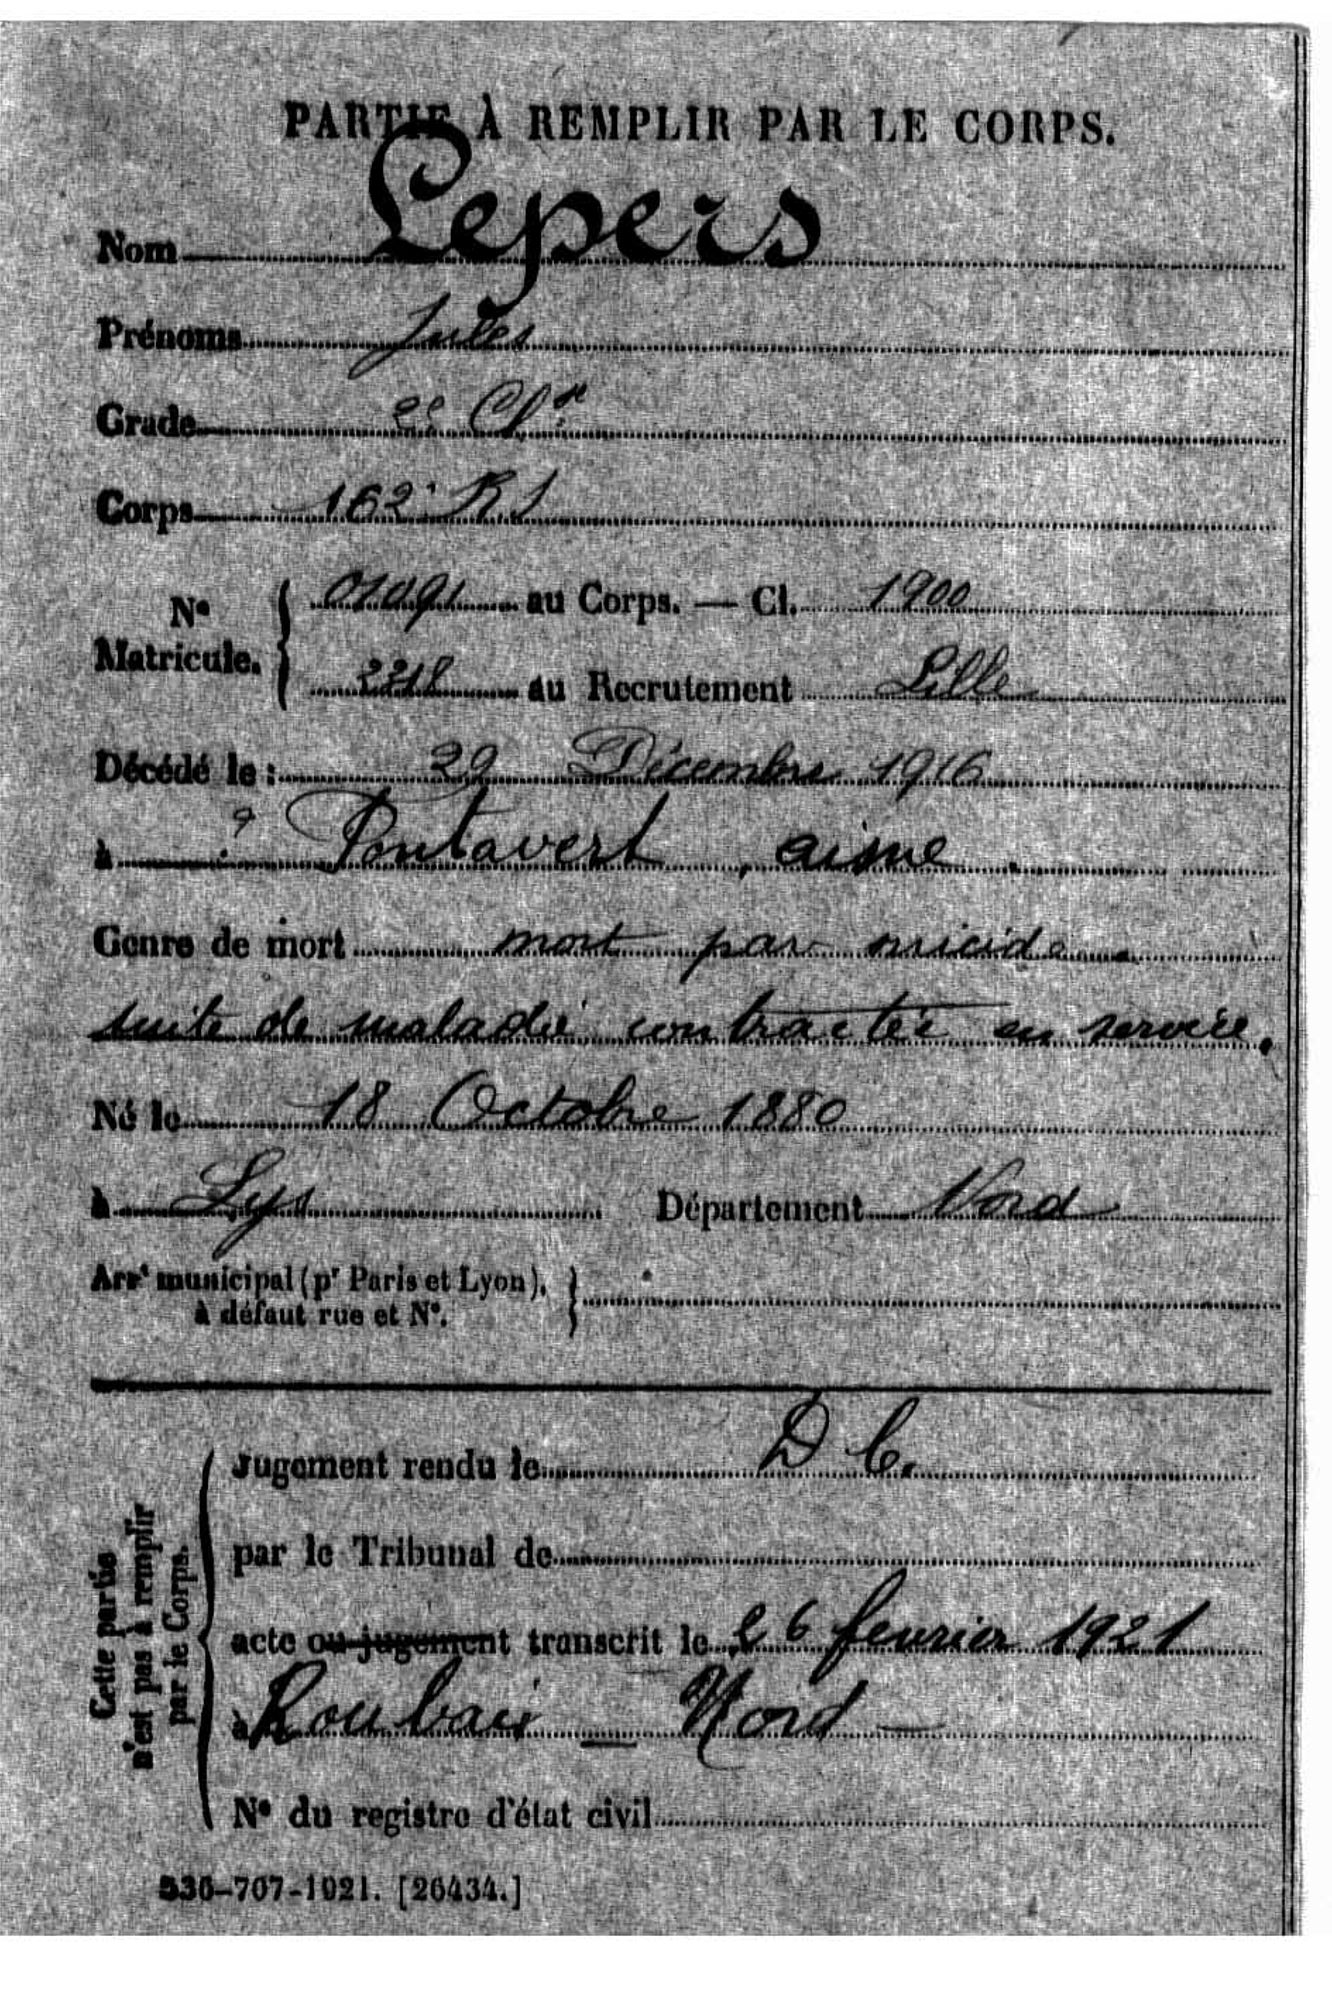 PARTIE À REMPLIR PAR LE CORPS.
Nom Lepers
Prénoms Jules
Grade 2e Cl.
Corps 162e R I
N° Matricule. 01091 au Corps. — Cl. 1900
2218 au Recrutement Lille
Décédé le : 29 Décembre 1916
à Pontavert, aisne.
Genre de mort mort par suicide
suite de maladie contractée en service.
Né le 18 Octobre 1880
à Lys Département Nord
Arrt municipal (pr Paris et Lyon),
à défaut rue et N°.
Jugement rendu le D C.
par le Tribunal de
acte ou jugement transcrit le 26 fevrier 1921
à Roubaix — Nord —
N° du registre d'état civil
Cette partie
n'est pas à remplir
par le Corps.
536-707-1921. [26434.]